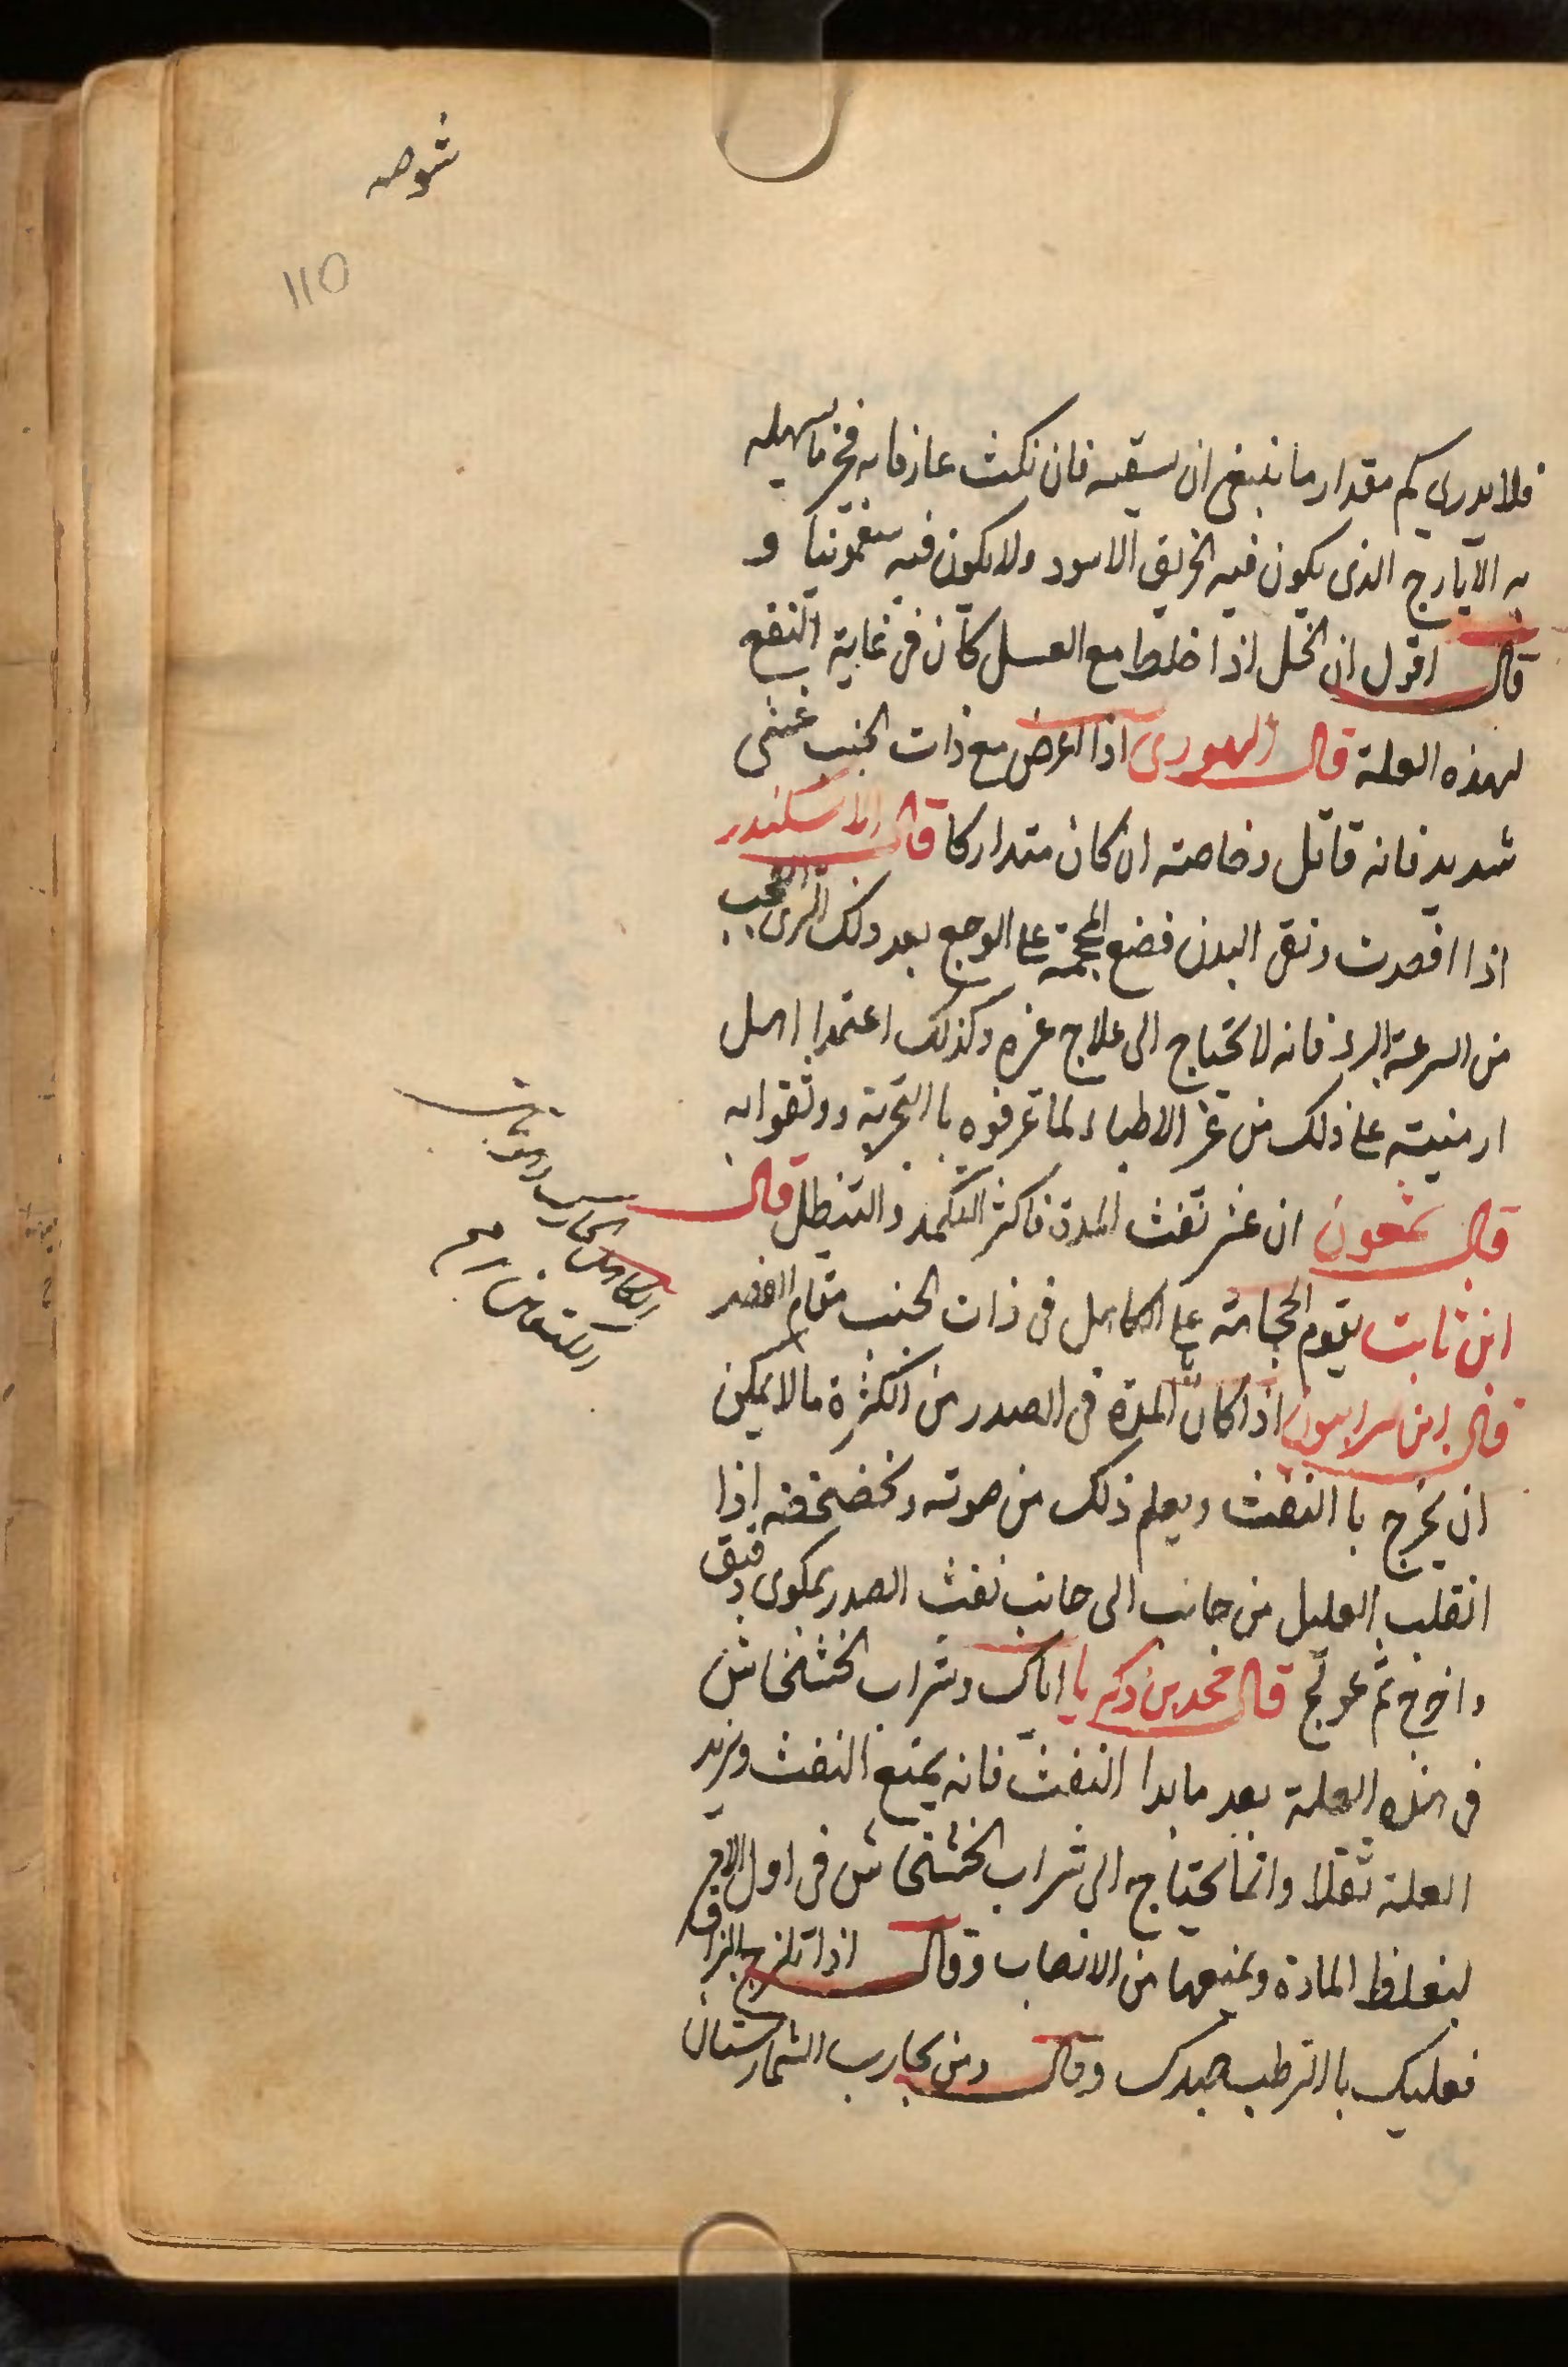 شوصه
110
فلا يدري كم مقدار ما ينبغى ان يسقيه فان نكث عازما به فخير ما يسهله
به الايارج الذى يكون فيه الخربق الاسود ولا يكون فيه سقمونيا و
قال اقول ان الخل اذا خلط مع العسل كان فى غاية النفع
لهذه العلة قال اليهودى اذا اعرض مع ذات الجنب غشى
شديد فانه قاتل وخاصته ان كان متداركا قال الاسكندر
اذا افصدت ونقى البدن فضع المحجمة على الوجع بعد ذلك الرى العجب
من السرعة البرء فانه لا يحتاج الى علاج غيره وكذلك اعتمد اهل
ارمنيته على ذلك من غير الاطباء لما عرفوه باالتجربة ووثقوا به
قال شمعون ان عسر نفث المدة فاكثر التكميد والتنطيل قال
ابن ثابت يقوم الحجامة على الكاهل فى ذات الجنب مقام الفصد
قال ابن سرابيون اذا كانت المدة فى الصدر من الكثرة ما لا يمكن
ان يخرج باالنفث ويعلم ذلك من صوته وخضخضته اذا
انقلب العليل من جانب الى جانب نفث الصدر بمكوى دقيق
واخرج ثم عولج قال محمد بن زكريا اياك وشراب الخشخاش
فى هذه العلة بعد ما بدا النفث فانه يمنع النفث ويزيد
العلة ثقلا وانما يحتاج الى شراب الخشخاش فى اول الامر
ليغلظ المادة ويمنعها من الانصاب وقال اذا تلزج البزاق
فعليك باالترطيب جهدك وقال ومن تجارب الشمارستان
الكاهل الحارك
الكتفان